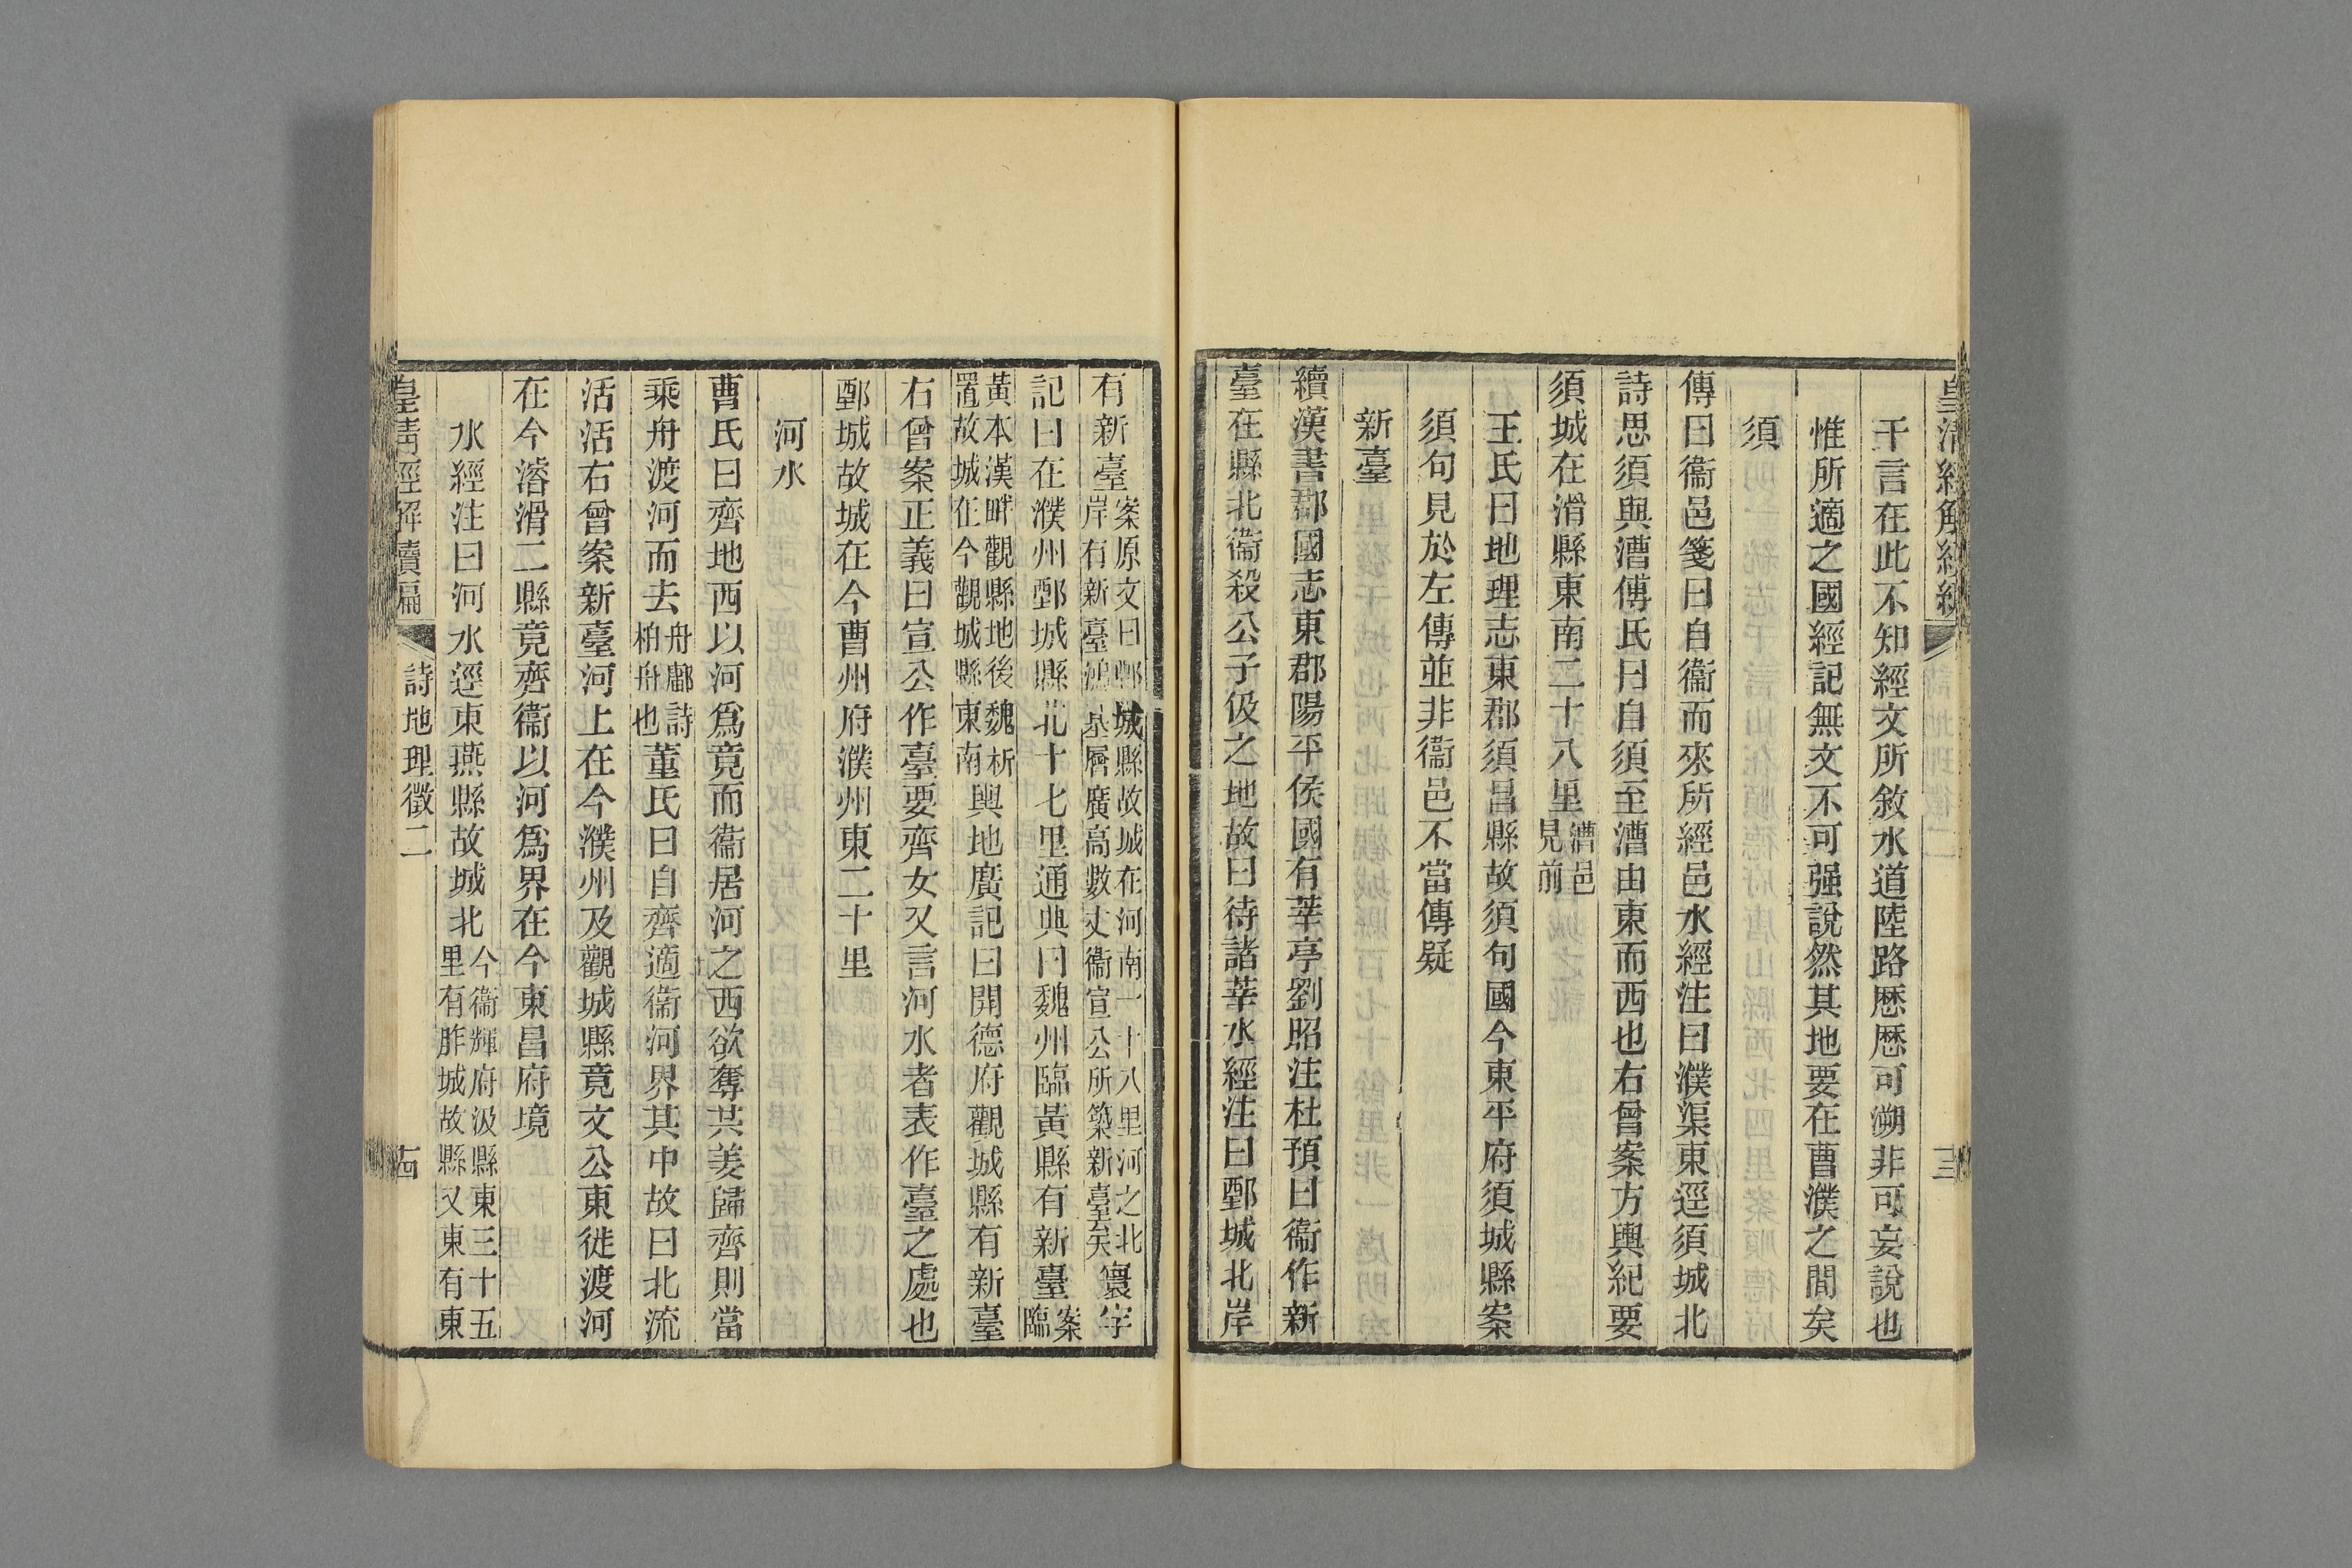 干言在此不知經文所敘水道陸路歷歷可溯非可妄說也
惟所適之國經記無文不可强說然其地要在曹濮之間矣
須
傳曰衞邑箋曰自衞而來所經邑水經注曰濮渠東逕須城北
詩思須與漕傳氏曰自須至漕由東而西也右曾案方輿紀要
須城在滑縣東南二十八里漕邑見前
王氏曰地理志東郡須昌縣故須句國今東平府須城縣案
須句見於左傳並非衞邑不當傳疑
新臺
續漢書郡國志東郡陽平侯國有莘亭劉昭注杜預曰衞作新
臺在縣北衞殺公子伋之地故曰待諸莘水經注曰鄄城北岸
有新臺案原文曰鄄城縣故城在河南一十八里河之北岸有新臺鴻基層廣高數丈衞宣公所築新臺矣寰宇
記曰在濮州鄄城縣北十七里通典曰魏州臨黃縣有新臺案臨
黃本漢畔觀縣地後魏析置故城在今觀城縣東南輿地廣記曰開德府觀城縣有新臺
右曾案正義曰宣公作臺要齊女又言河水者表作臺之處也
鄄城故城在今曹州府濮州東二十里
河水
曹氏曰齊地西以河爲竟而衞居河之西欲奪共姜歸齊則當
乘舟渡河而去舟鄘詩柏舟也董氏曰自齊適衞河界其中故曰北流
活活右曾案新臺河上在今濮州及觀城縣竟文公東徙渡河
在今濬滑二縣竟齊衞以河爲界在今東昌府境
水經注曰河水逕東燕縣故城北今衞輝府汲縣東三十五里有胙城故縣又東有東
皇清經解續編
詩地理徵二
古